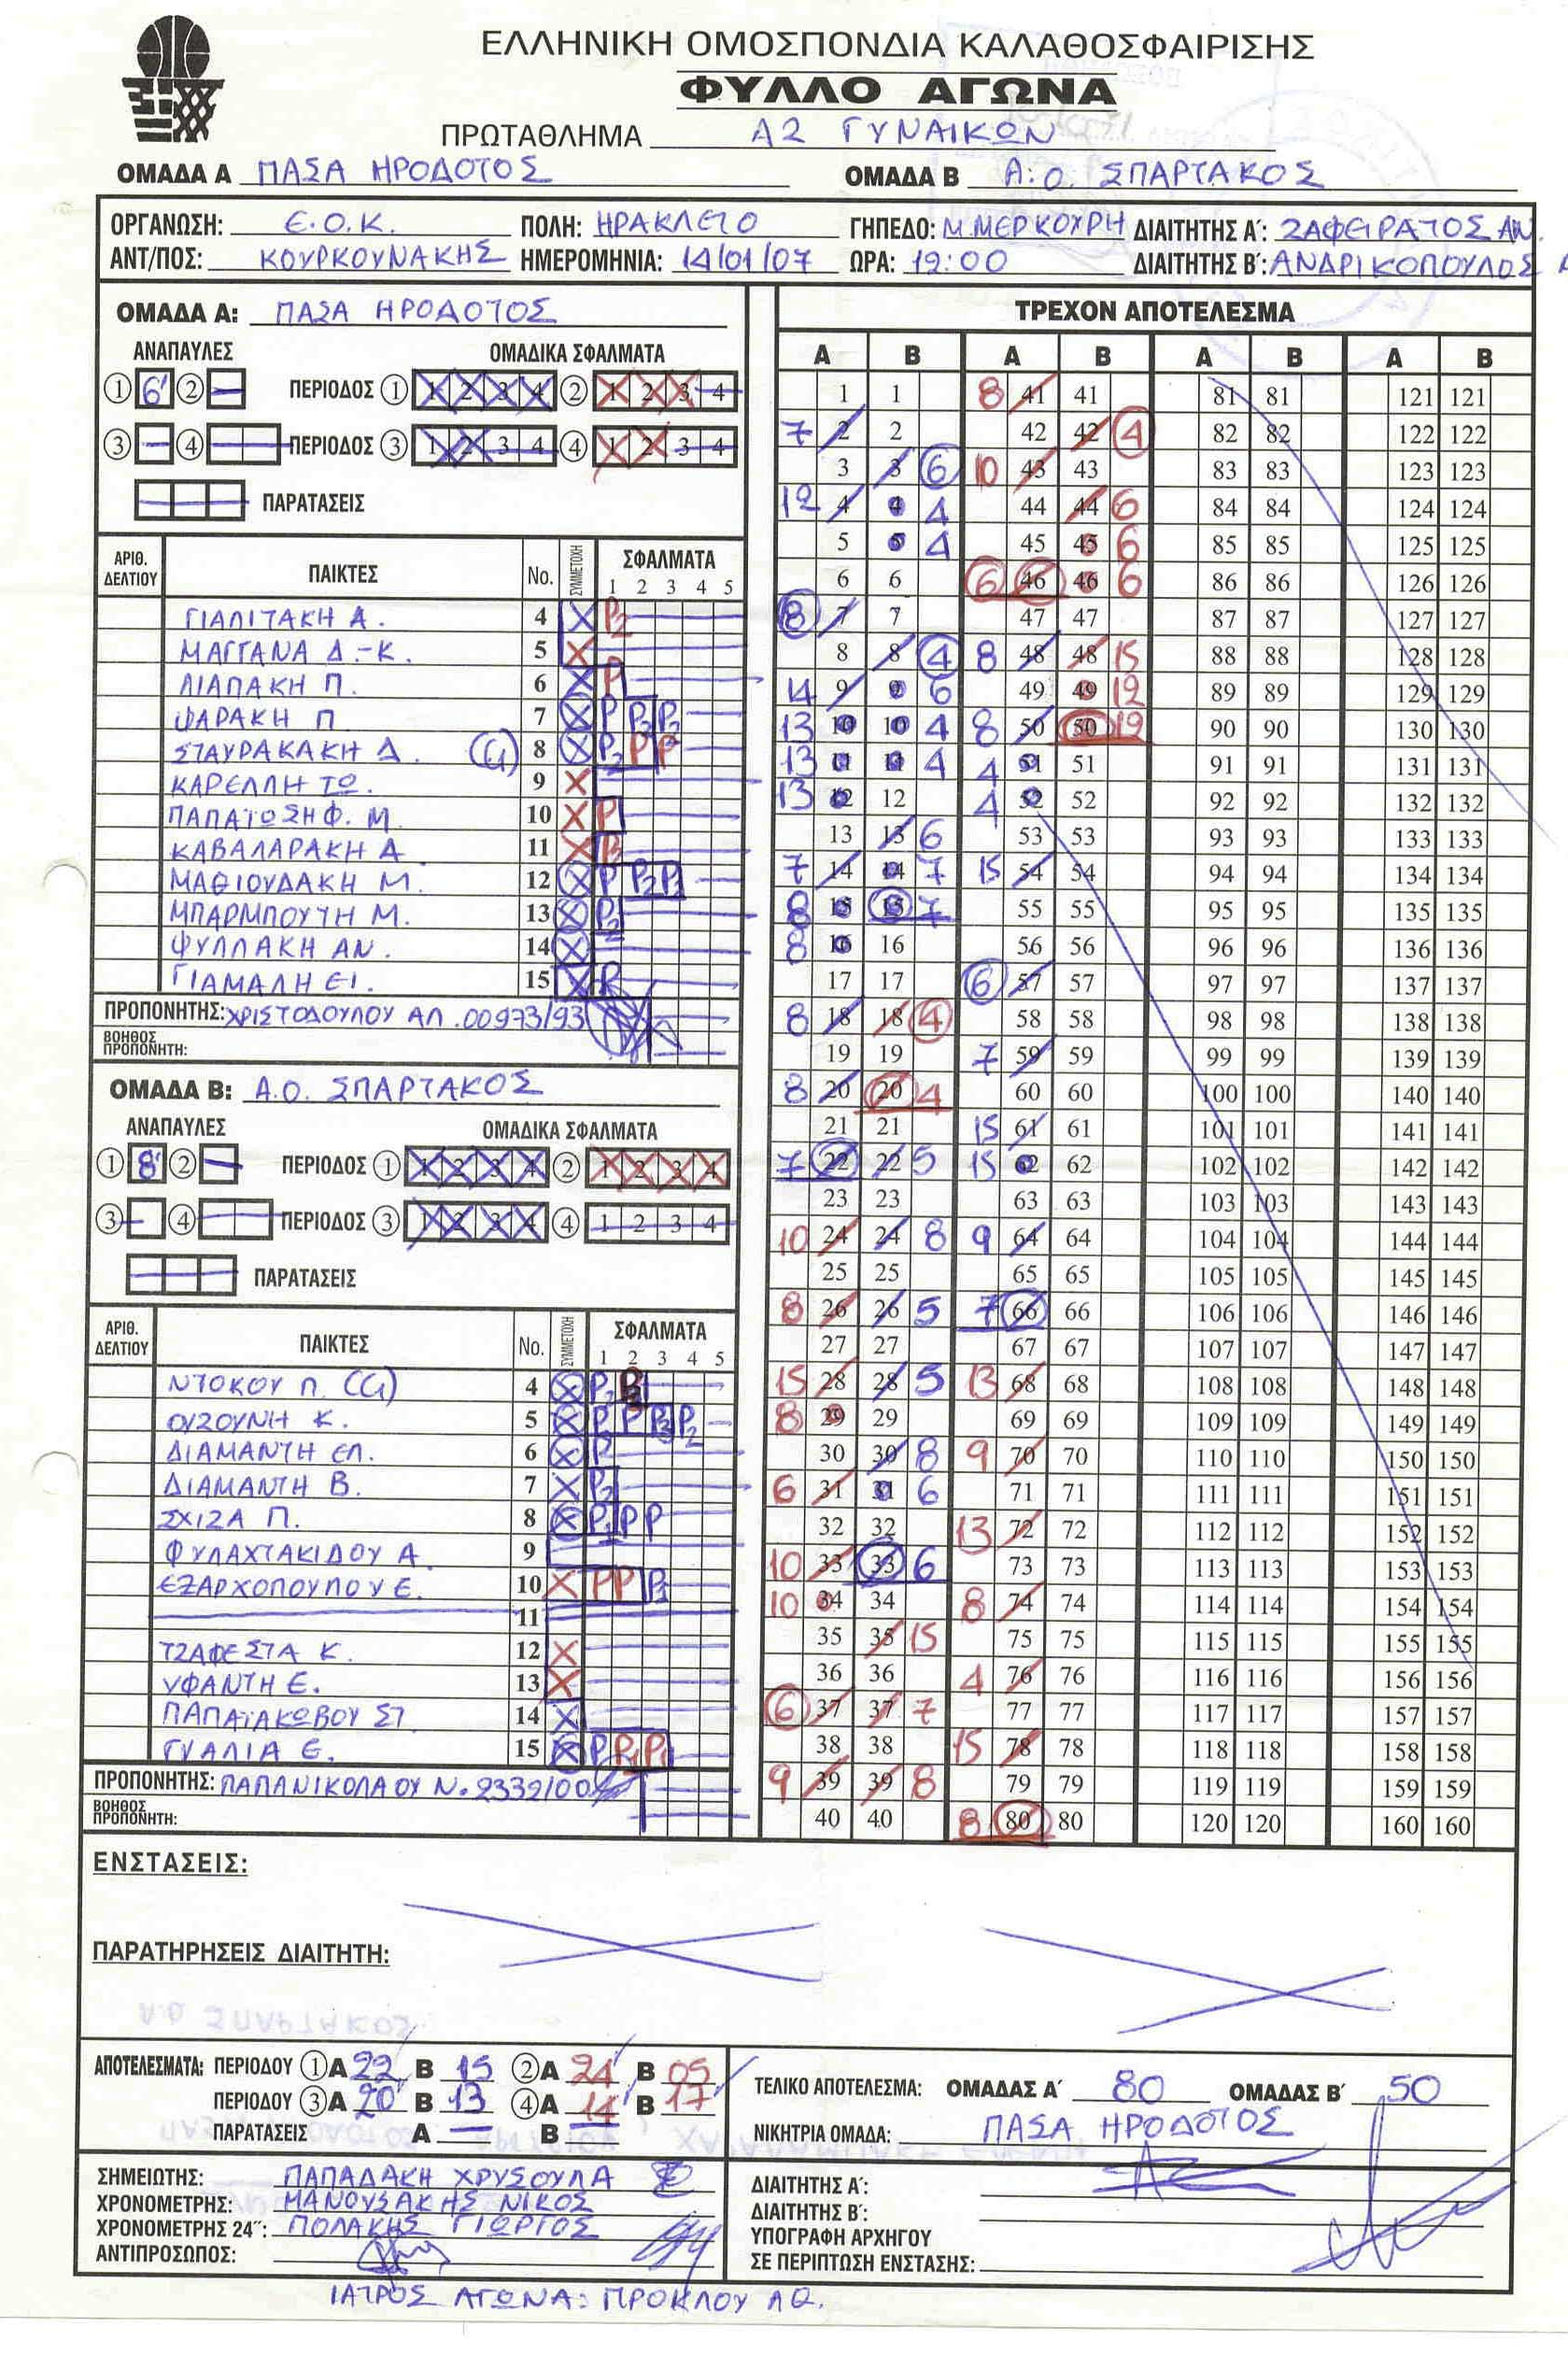 ΕΛΛΗΝΙΚΗ ΟΜΟΣΠΟΝΔΙΑ ΚΑΛΑΘΟΣΦΑΙΡΙΣΗΣ
ΦΥΛΛΟ ΑΓΩΝΑ
ΠΡΩΤΑΘΛΗΜΑ Α2 ΓΥΝΑΙΚΩΝ
ΟΜΑΔΑ Α ΠΑΣΑ ΗΡΟΔΟΤΟΣ ΟΜΑΔΑ Β Α.Ο. ΣΠΑΡΤΑΚΟΣ
ΟΡΓΑΝΩΣΗ: Ε.Ο.Κ. ΠΟΛΗ: ΗΡΑΚΛΕΙΟ ΓΗΠΕΔΟ: Μ.ΜΕΡΚΟΥΡΗ ΔΙΑΙΤΗΤΗΣ Α΄: ΖΑΦΕΙΡΑΤΟΣ ΑΝ.
ΑΝΤ/ΠΟΣ: ΚΟΥΡΚΟΥΝΑΚΗΣ ΗΜΕΡΟΜΗΝΙΑ: 14/01/07 ΩΡΑ: 12:00 ΔΙΑΙΤΗΤΗΣ Β΄: ΑΝΔΡΙΚΟΠΟΥΛΟΣ
ΟΜΑΔΑ Α: ΠΑΣΑ ΗΡΟΔΟΤΟΣ
ΑΝΑΠΑΥΛΕΣ ΟΜΑΔΙΚΑ ΣΦΑΛΜΑΤΑ
1 6' 2 ΠΕΡΙΟΔΟΣ 1 1 2 3 4 2 1 2 3 4
3 4 ΠΕΡΙΟΔΟΣ 3 1 2 3 4 4 1 2 3 4
ΠΑΡΑΤΑΣΕΙΣ
ΑΡΙΘ. ΔΕΛΤΙΟΥ ΠΑΙΚΤΕΣ No. ΣΥΜΜΕΤΟΧΗ ΣΦΑΛΜΑΤΑ
1 2 3 4 5
ΓΙΑΛΙΤΑΚΗ Α. 4 P2
ΜΑΓΓΑΝΑ Δ.-Κ. 5
ΛΙΑΠΑΚΗ Π. 6 P
ΨΑΡΑΚΗ Π 7 P P2 P2
ΣΤΑΥΡΑΚΑΚΗ Δ. 8 P2 P P
ΚΑΡΕΛΛΗ ΤΩ. 9
ΠΑΠΑΤΩΣΗ Φ. Μ. 10 P
ΚΑΒΑΛΑΡΑΚΗ Α 11
ΜΑΘΙΟΥΔΑΚΗ Μ. 12 P P2
ΜΠΑΡΜΠΟΥΤΗ Μ. 13 P2
ΨΥΛΛΑΚΗ ΑΝ. 14
ΓΙΑΜΑΛΗ ΕΙ. 15 P
ΠΡΟΠΟΝΗΤΗΣ: ΧΡΙΣΤΟΔΟΥΛΟΥ ΑΛ. 00973/93
ΒΟΗΘΟΣ ΠΡΟΠΟΝΗΤΗ:
ΟΜΑΔΑ Β: Α.Ο. ΣΠΑΡΤΑΚΟΣ
ΑΝΑΠΑΥΛΕΣ ΟΜΑΔΙΚΑ ΣΦΑΛΜΑΤΑ
1 8' 2 ΠΕΡΙΟΔΟΣ 1 1 2 3 4 2 1 2 3 4
3 4 ΠΕΡΙΟΔΟΣ 3 1 2 3 4 4 1 2 3 4
ΠΑΡΑΤΑΣΕΙΣ
ΑΡΙΘ. ΔΕΛΤΙΟΥ ΠΑΙΚΤΕΣ No. ΣΥΜΜΕΤΟΧΗ ΣΦΑΛΜΑΤΑ
1 2 3 4 5
ΝΤΟΚΟΥ Π. 4 P2
ΟΥΖΟΥΝΗ Κ. 5 P P P2
ΔΙΑΜΑΝΤΗ ΕΛ. 6 P
ΔΙΑΜΑΝΤΗ Β. 7 P2
ΣΧΙΖΑ Π. 8 P P
ΦΥΛΑΧΤΑΚΙΔΟΥ Α. 9
ΕΞΑΡΧΟΠΟΥΛΟΥ Ε. 10 P P
11
ΤΖΑΦΕΣΤΑ Κ. 12
ΥΦΑΝΤΗ Ε. 13
ΠΑΠΑΪΑΚΩΒΟΥ ΣΤ 14
ΓΥΑΛΙΑ Ε. 15 P P1 P1
ΠΡΟΠΟΝΗΤΗΣ: ΠΑΠΑΝΙΚΟΛΑΟΥ Ν. 2332/00
ΒΟΗΘΟΣ ΠΡΟΠΟΝΗΤΗ:
ΤΡΕΧΟΝ ΑΠΟΤΕΛΕΣΜΑ
Α Β Α Β Α Β Α Β
1 1 8 41 41 81 81 121 121
7 2 2 42 42 4 82 82 122 122
3 3 6 10 43 43 83 83 123 123
12 4 4 4 44 44 6 84 84 124 124
5 5 4 45 45 6 85 85 125 125
6 6 6 46 46 6 86 86 126 126
8 7 7 47 47 87 87 127 127
8 8 4 8 48 48 15 88 88 128 128
14 9 9 6 49 49 12 89 89 129 129
13 10 10 4 8 50 50 12 90 90 130 130
13 11 11 4 4 51 51 91 91 131 131
13 12 12 4 52 52 92 92 132 132
13 13 6 53 53 93 93 133 133
7 14 14 7 15 54 54 94 94 134 134
8 15 15 7 55 55 95 95 135 135
8 16 16 56 56 96 96 136 136
17 17 6 57 57 97 97 137 137
8 18 18 4 58 58 98 98 138 138
19 19 7 59 59 99 99 139 139
8 20 20 4 60 60 100 100 140 140
21 21 15 61 61 101 101 141 141
7 22 22 5 15 62 62 102 102 142 142
23 23 63 63 103 103 143 143
10 24 24 8 9 64 64 104 104 144 144
25 25 65 65 105 105 145 145
8 26 26 5 7 66 66 106 106 146 146
27 27 67 67 107 107 147 147
15 28 28 5 13 68 68 108 108 148 148
8 29 29 69 69 109 109 149 149
30 30 8 9 70 70 110 110 150 150
6 31 31 6 71 71 111 111 151 151
32 32 13 72 72 112 112 152 152
10 33 33 6 73 73 113 113 153 153
10 34 34 8 74 74 114 114 154 154
35 35 15 75 75 115 115 155 155
36 36 4 76 76 116 116 156 156
6 37 37 7 77 77 117 117 157 157
38 38 15 78 78 118 118 158 158
9 39 39 8 79 79 119 119 159 159
40 40 8 80 80 120 120 160 160
ΕΝΣΤΑΣΕΙΣ:
ΠΑΡΑΤΗΡΗΣΕΙΣ ΔΙΑΙΤΗΤΗ:
ΑΠΟΤΕΛΕΣΜΑΤΑ: ΠΕΡΙΟΔΟΥ 1 Α 22 Β 15 2 Α 24 Β 05
ΠΕΡΙΟΔΟΥ 3 Α 20 Β 13 4 Α 14 Β 17
ΠΑΡΑΤΑΣΕΙΣ Α Β
ΤΕΛΙΚΟ ΑΠΟΤΕΛΕΣΜΑ: ΟΜΑΔΑΣ Α΄ 80 ΟΜΑΔΑΣ Β΄ 50
ΝΙΚΗΤΡΙΑ ΟΜΑΔΑ: ΠΑΣΑ ΗΡΟΔΟΤΟΣ
ΣΗΜΕΙΩΤΗΣ: ΠΑΠΑΔΑΚΗ ΧΡΥΣΟΥΛΑ
ΧΡΟΝΟΜΕΤΡΗΣ: ΜΑΝΟΥΣΑΚΗΣ ΝΙΚΟΣ
ΧΡΟΝΟΜΕΤΡΗΣ 24΄΄: ΠΟΛΑΚΗΣ ΓΙΩΡΓΟΣ
ΑΝΤΙΠΡΟΣΩΠΟΣ:
ΔΙΑΙΤΗΤΗΣ Α΄:
ΔΙΑΙΤΗΤΗΣ Β΄:
ΥΠΟΓΡΑΦΗ ΑΡΧΗΓΟΥ
ΣΕ ΠΕΡΙΠΤΩΣΗ ΕΝΣΤΑΣΗΣ:
ΙΑΤΡΟΣ ΑΓΩΝΑ: ΠΡΟΚΛΟΥ ΑΘ.